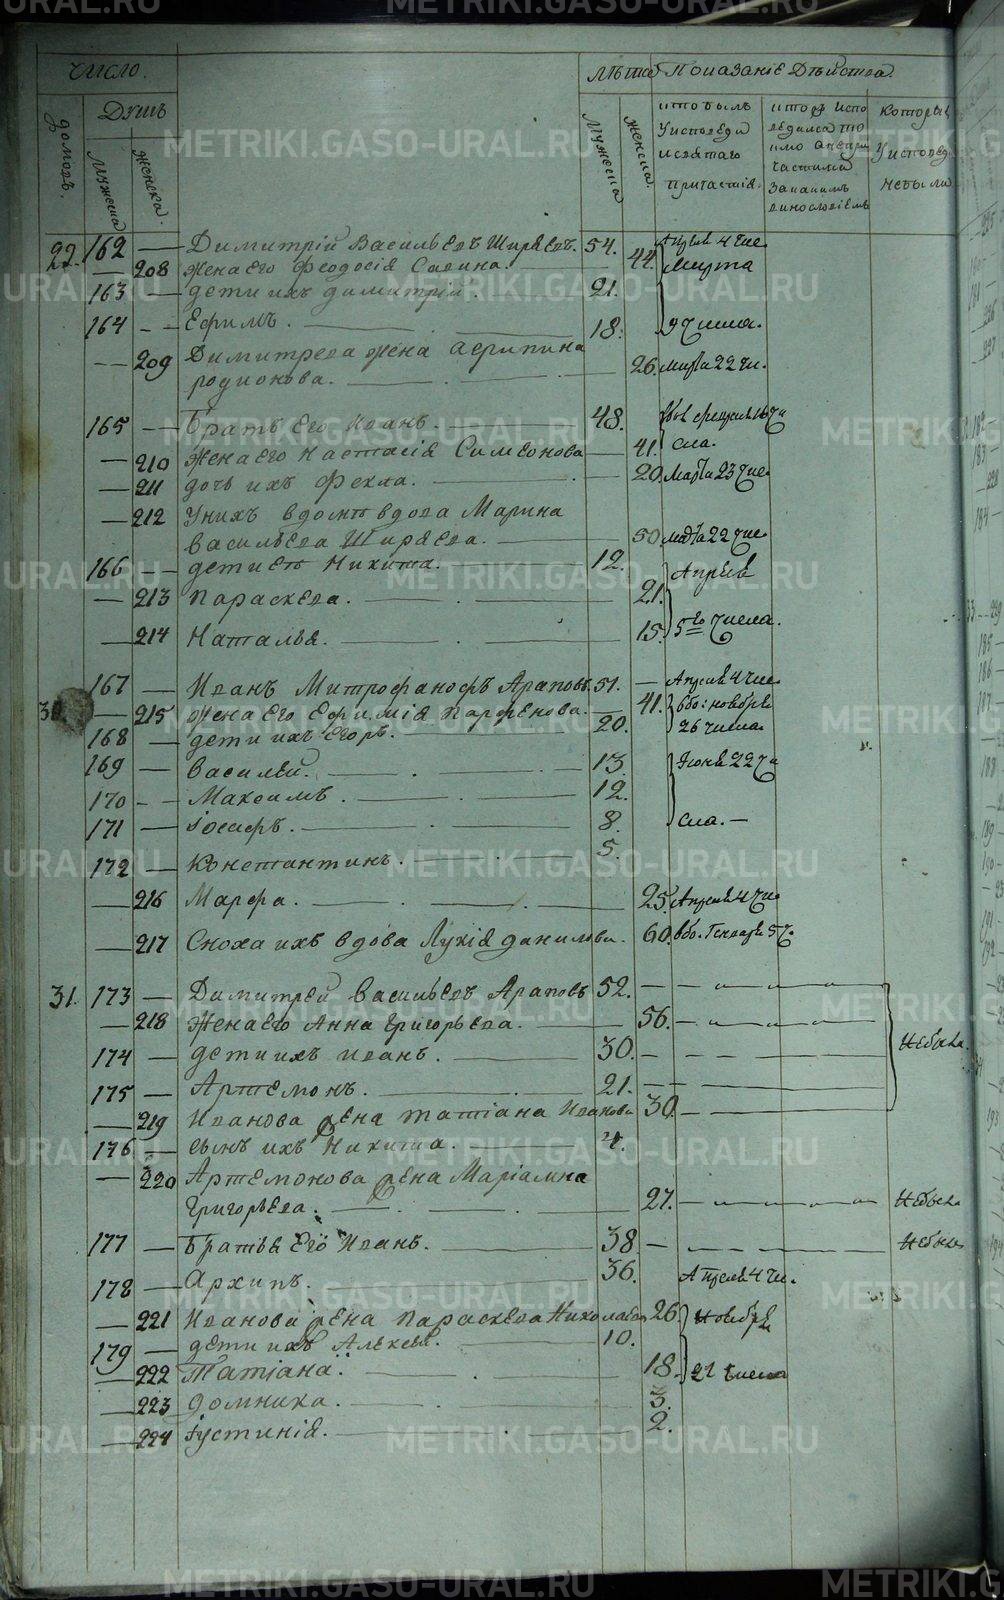 число.
лѣта Показаніе Дѣйства.
домовъ.
Душъ
мужеска
женска.
Мужеска
женска.
что былъ У исповеди и святаго причастія.
которыи У исповеди небыли
22. 162 — Димитрій Васильевъ Ширяевъ. 54. Апреля 4 чис.
— 208 жена его Феодосія Савина. 44. Марта
163 — дети ихъ димитрій. 21.
164 — Ефимъ. 18. 9 числа.
— 209 Димитрева жена Агрипина
родионова. 26. марта 22 чи.
165 — Братъ его Иванъ. 48.
— 210 жена его Настасія Симеонова 41. сла.
— 211 дочь ихъ Фекла. 20. Марта 23 чис.
— 212 У нихъ вдомѣ вдова Марина
васильева Ширяева. 50. марта 22 чис.
166 — дети ея Никита. 12. Апреля
— 213 Параскева. 21.
— 214 Наталья. 15. 5го числа.
167 — Иванъ Митрофановъ Араповъ. 51. — Апреля 4 чис.
— 215 жена его Ефимія Парфенова. 41. ноября
168 — дети ихъ Егоръ. 20. 26 числа
169 — Василей. 13. Іюня 22 чи
170 — Максимъ. 12.
171 — Іосифъ. 8. сла. —
172 — Константинъ. 5.
— 216 Марфа. 25. Апреля 4 чис
— 217 Сноха ихъ вдова Лукія данилова. 60. Генваря 5 ч.
31. 173 — Димитрей Васильевъ Араповъ 52. —
— 218 Жена его Анна Григорьева. 56. —
174 — дети ихъ Иванъ. 30. — Небыли.
175 — Артемонъ. 21. —
— 219 Иванова жена татіана Иванова 30. —
176 — сынъ ихъ Никита. 4.
— 220 Артемонова жена Маріамна
Григорьева. 27. — Небыла
177 — Братья Его Иванъ. 38 — Небылъ
178 — Архипъ. 36. Апреля 4 чи.
— 221 Иванова жена Параскева Николаева 26. Ноября
179 — дети ихъ Алексей. 10.
— 222 Татіана. 18. 21 числа
— 223 домника. 3.
— 224 Іустинія. 2.
METRIKI.GASO-URAL.RU